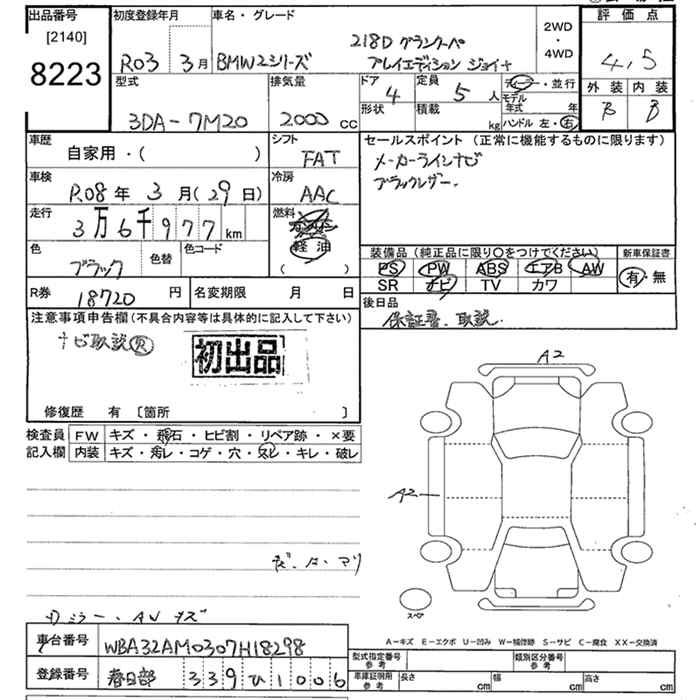 出品番号
[2140]
8223
初度登録年月
R03 3月
車名・グレード
BMW2シリーズ
218D グランクーペ
プレイエディション ジョイ+
2WD
・
4WD
評価点
4.5
外装 内装
B B
型式
3DA-7M20
排気量
2000 CC
ドア
4
定員
5 人
ディーラー・並行
モデル
年式 年
形状
積載 kg
ハンドル 左・右
車歴
自家用・( )
シフト
FAT
セールスポイント (正常に機能するものに限ります)
メーカーラインナビ
ブラックレザー.
車検
R08年 3月(29日)
冷房
AAC
走行
3万6千977km
燃料
軽油
( )
色
ブラック
色替
色コード
装備品 (純正品に限り〇をつけてください)
PS PW ABS エアB AW
SR ナビ TV カワ
新車保証書
有・無
R券 18720 円
名変期限 月 日
後日品
保証書. 取説.
注意事項申告欄(不具合内容等は具体的に記入して下さい)
ナビ取説
初出品
修復歴 有 [箇所 ]
検査員
記入欄
FW キズ・飛石・ヒビ割・リペア跡・×要
内装 キズ・汚レ・コゲ・穴・スレ・キレ・破レ
A2
A2
スペア
A-キズ E-エクボ U-凹み W-補修跡 S-サビ C-腐食 XX-交換済
車台番号 WBA32AM0307H18298
登録番号 春日部 339ひ1006
型式指定番号
参考
類別区分番号
参考
車庫証明用
参考
長さ cm 幅 cm 高さ cm